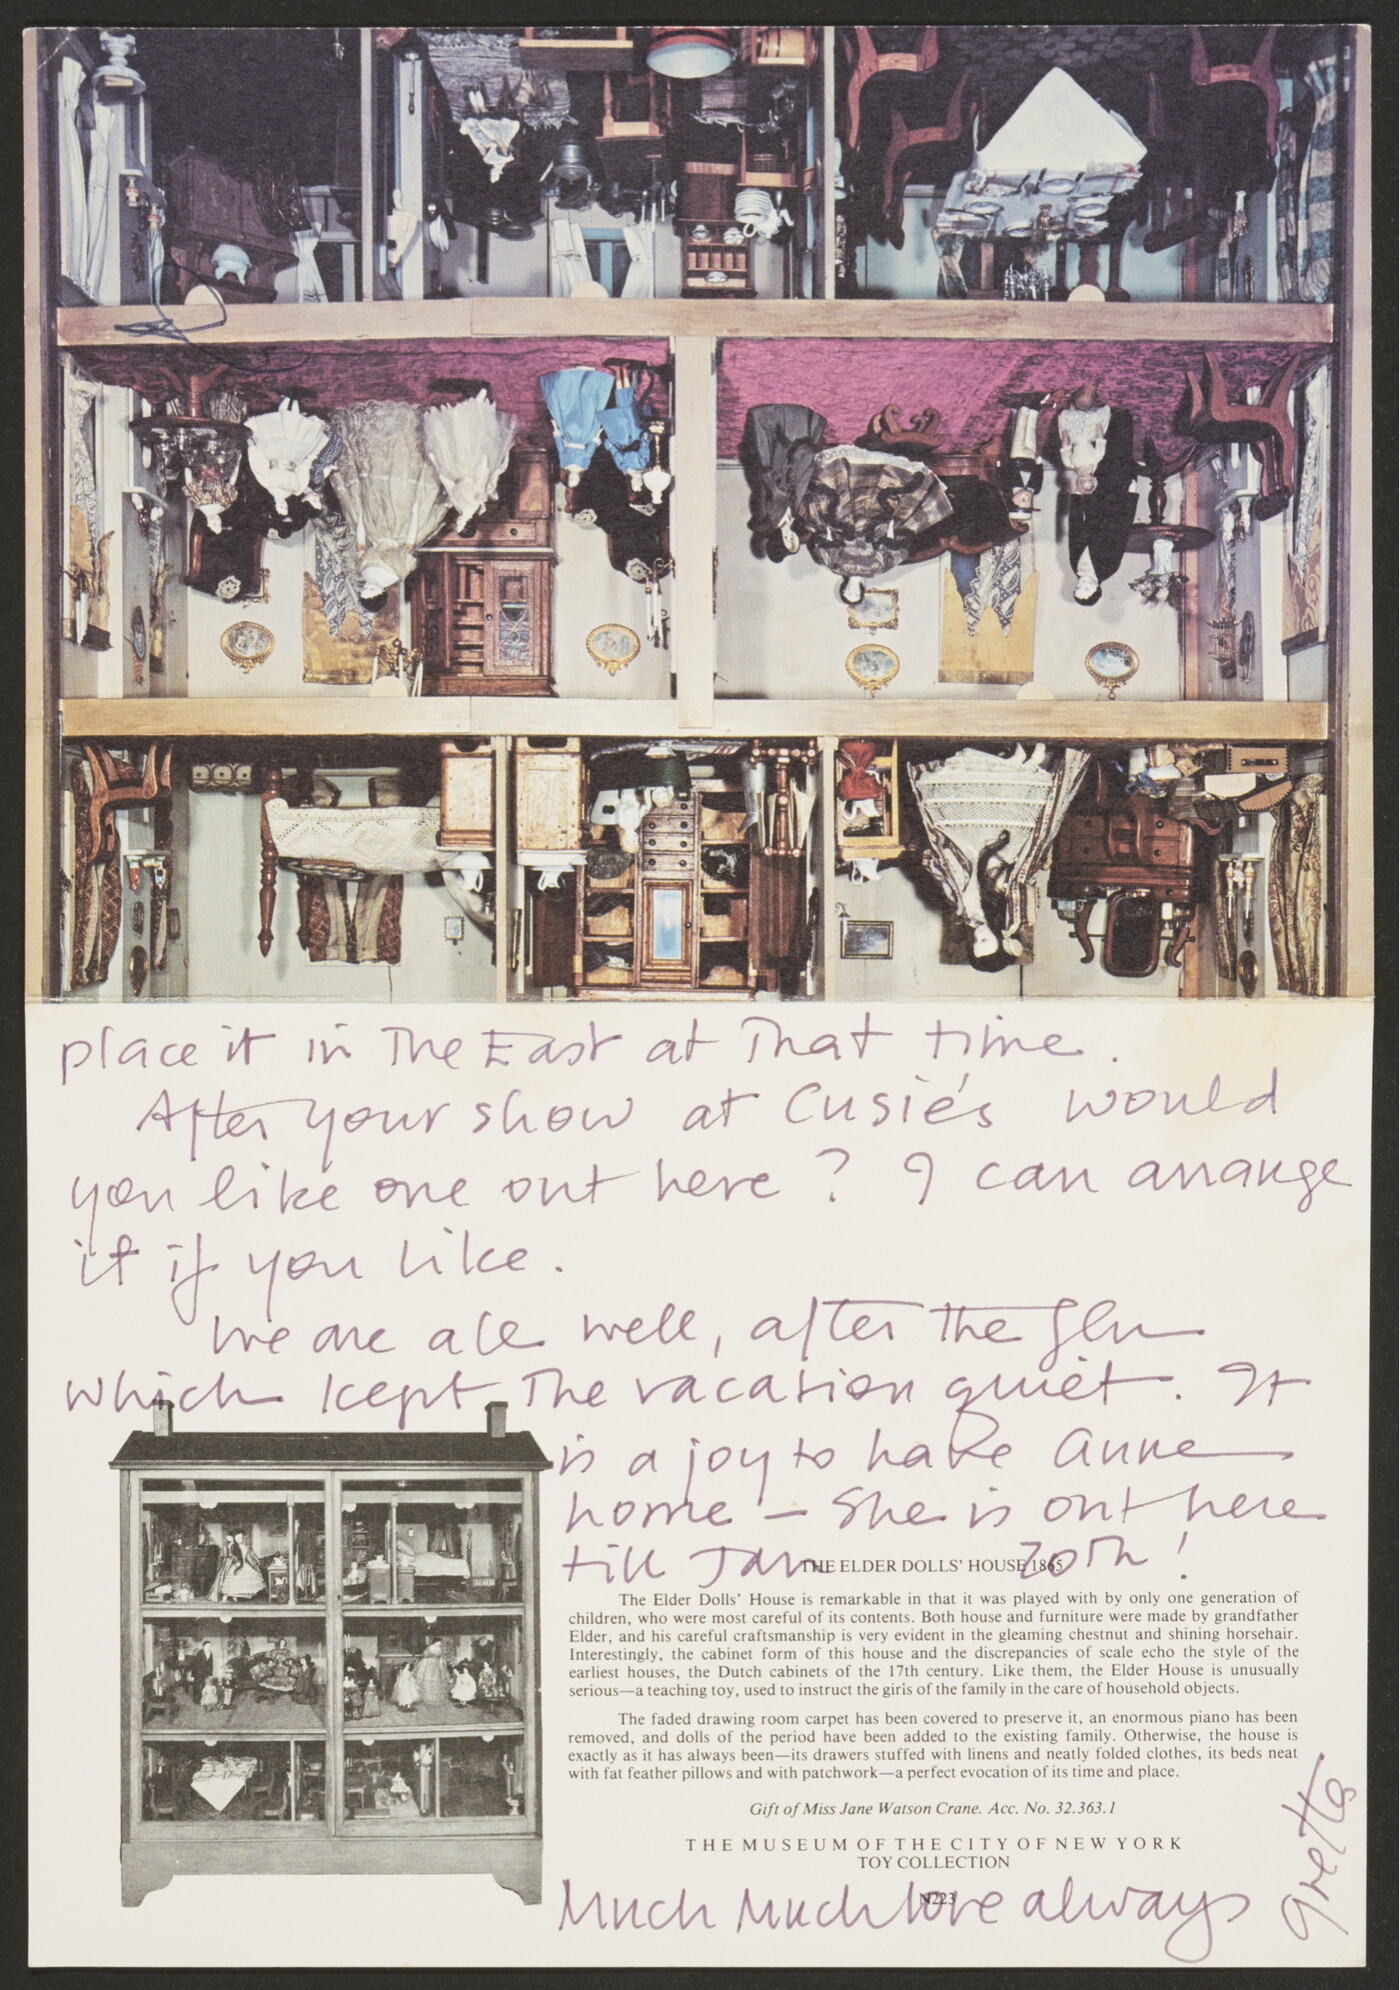 place it in The East at That time.
After your show at Cusié's would
you like one out here? I can arrange
it if you like.
We are all well, after the flu
which kept The vacation quiet. It
is a joy to have Anne
home – She is out here
till Jan 20th!
THE ELDER DOLLS' HOUSE 1865
The Elder Dolls' House is remarkable in that it was played with by only one generation of
children, who were most careful of its contents. Both house and furniture were made by grandfather
Elder, and his careful craftsmanship is very evident in the gleaming chestnut and shining horsehair.
Interestingly, the cabinet form of this house and the discrepancies of scale echo the style of the
earliest houses, the Dutch cabinets of the 17th century. Like them, the Elder House is unusually
serious—a teaching toy, used to instruct the girls of the family in the care of household objects.
The faded drawing room carpet has been covered to preserve it, an enormous piano has been
removed, and dolls of the period have been added to the existing family. Otherwise, the house is
exactly as it has always been—its drawers stuffed with linens and neatly folded clothes, its beds neat
with fat feather pillows and with patchwork—a perfect evocation of its time and place.
Gift of Miss Jane Watson Crane. Acc. No. 32.363.1
THE MUSEUM OF THE CITY OF NEW YORK
TOY COLLECTION
N223
Much Much love always
Gretta